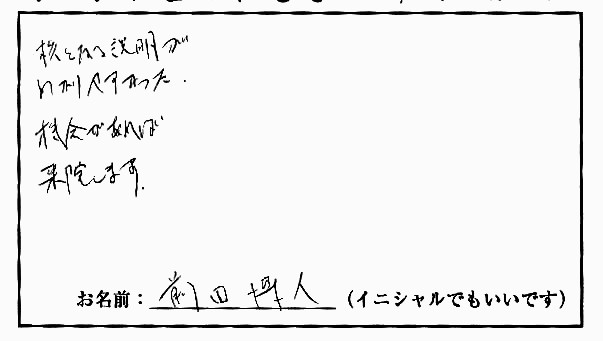 核となる説明が
わかりやすかった.
機会があれば
来院します.
お名前: 前田博人 (イニシャルでもいいです)